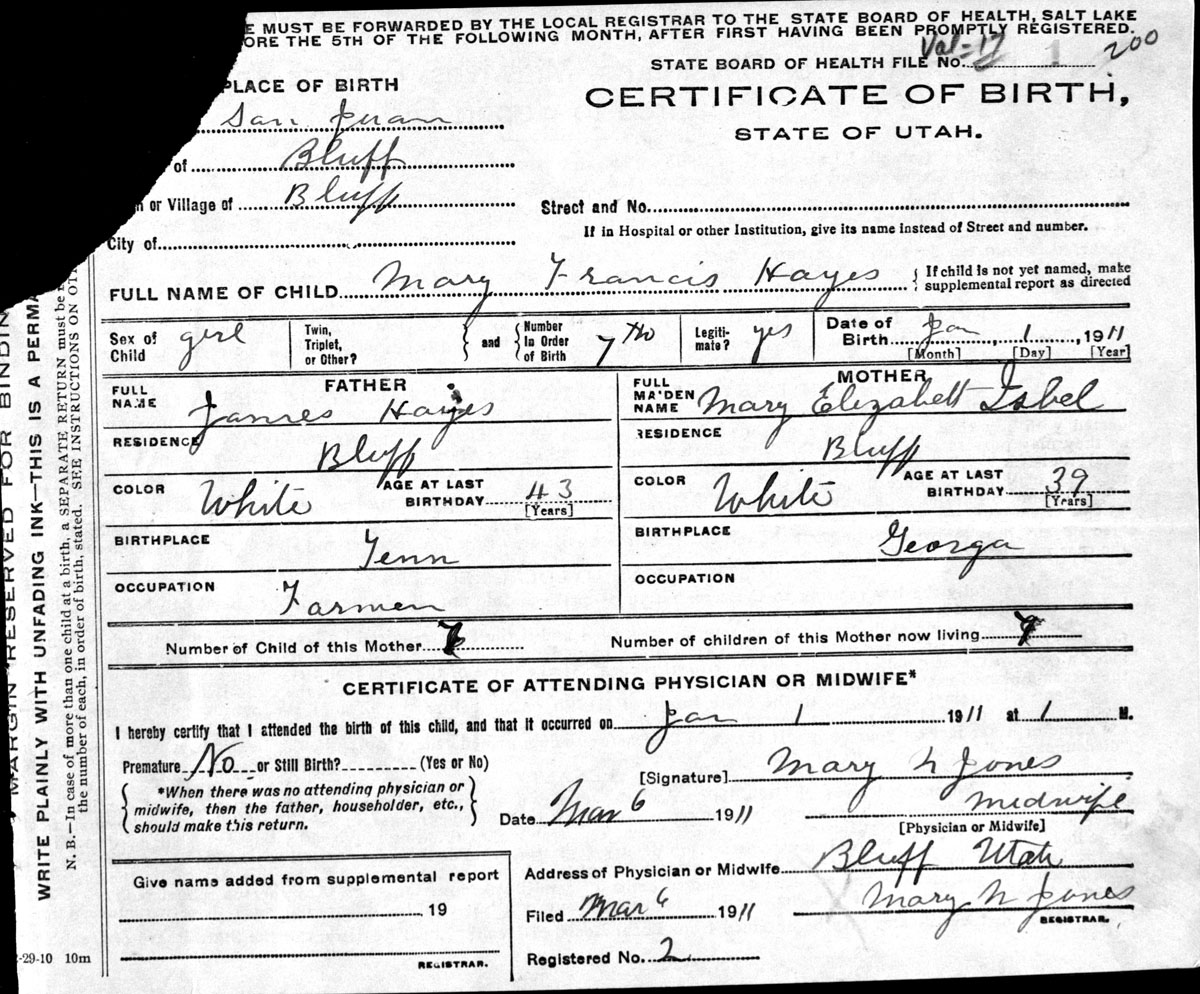 E MUST BE FORWARDED BY THE LOCAL REGISTRAR TO THE STATE BOARD OF HEALTH, SALT LAKE
ORE THE 5TH OF THE FOLLOWING MONTH, AFTER FIRST HAVING BEEN PROMPTLY REGISTERED.
Val=17
STATE BOARD OF HEALTH FILE No. 1 200
PLACE OF BIRTH
CERTIFICATE OF BIRTH,
STATE OF UTAH.
San Juan
of Bluff
n or Village of Bluff
Street and No.
If in Hospital or other Institution, give its name instead of Street and number.
City of
FULL NAME OF CHILD Mary Francis Hayes { If child is not yet named, make supplemental report as directed
Sex of Child girl Twin, Triplet, or Other? } and { Number in Order of Birth 7th Legitimate? yes Date of Birth Jan 1, 1911
[Month] [Day] [Year]
FATHER
FULL NAME James Hayes
RESIDENCE Bluff
COLOR White AGE AT LAST BIRTHDAY 43 [Years]
BIRTHPLACE Tenn
OCCUPATION Farmer
MOTHER
FULL MAIDEN NAME Mary Elizabett Isbel
RESIDENCE Bluff
COLOR White AGE AT LAST BIRTHDAY 39 [Years]
BIRTHPLACE Georga
OCCUPATION
Number of Child of this Mother 7 Number of children of this Mother now living
CERTIFICATE OF ATTENDING PHYSICIAN OR MIDWIFE*
I hereby certify that I attended the birth of this child, and that it occurred on Jan 1 1911 at 1 M.
Premature No or Still Birth? (Yes or No)
{ *When there was no attending physician or
midwife, then the father, householder, etc.,
should make this return. }
[Signature] Mary N Jones
Date Mar 6 1911 Midwife
[Physician or Midwife]
Address of Physician or Midwife Bluff Utah
Filed Mar 6 1911 Mary N Jones
REGISTRAR.
Registered No. 2
Give name added from supplemental report
, 19
REGISTRAR.
-29-10 10m
MARGIN RESERVED FOR BINDIN
WRITE PLAINLY WITH UNFADING INK—THIS IS A PERMA
N. B.—In case of more than one child at a birth, a SEPARATE RETURN must be
the number of each, in order of birth, stated. SEE INSTRUCTIONS ON OT